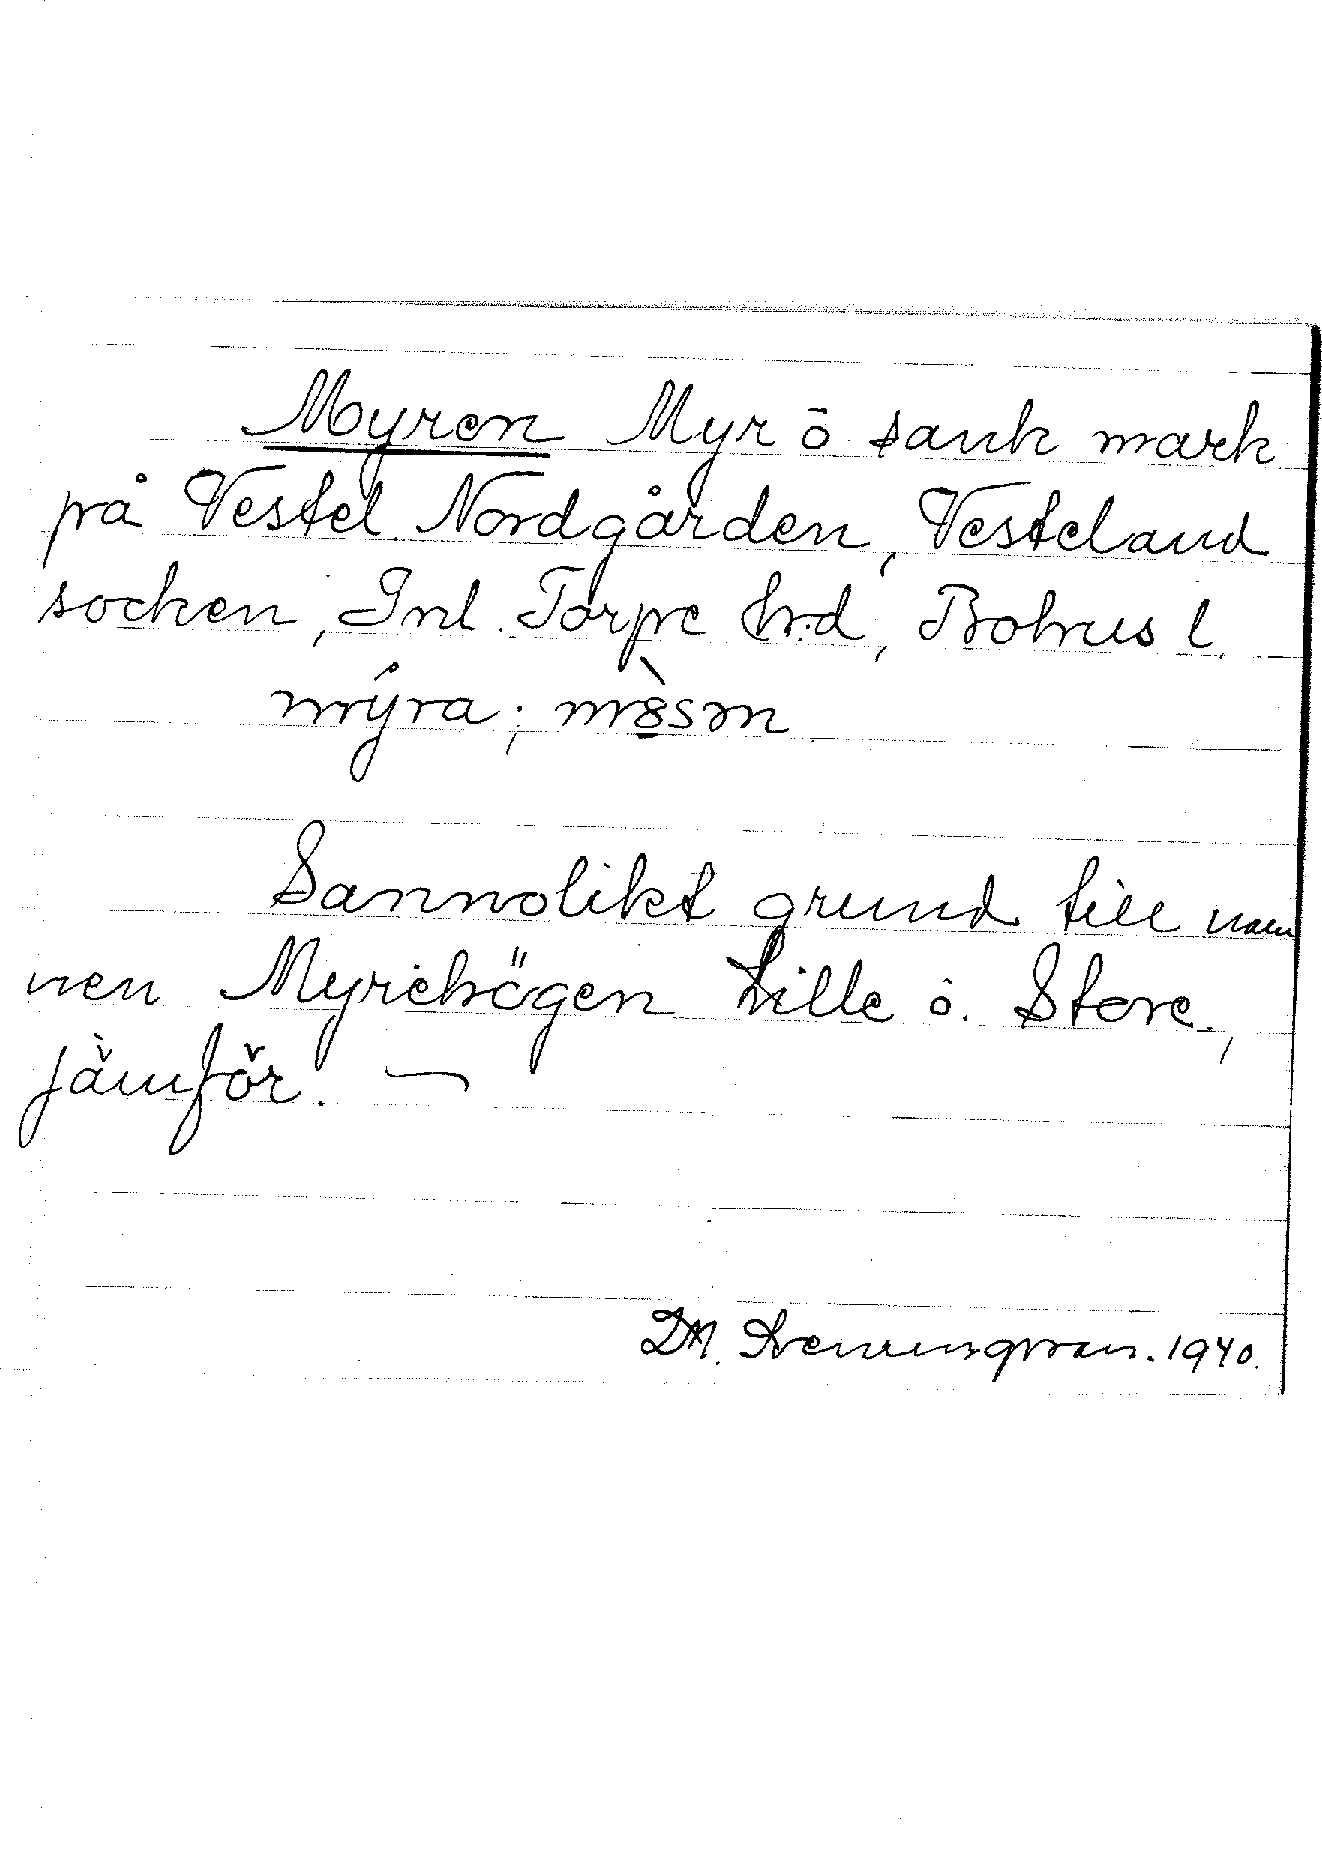 Myren Myr ō sank mark
på Vestel Nordgården, Vesteland
socken, Inl. Torpe hrd, Bohus l.
mýra; mòsm
Sannolikt grund till nam
nen Myrehögen Lille o. Store,
jämför. —
DM. 1940.